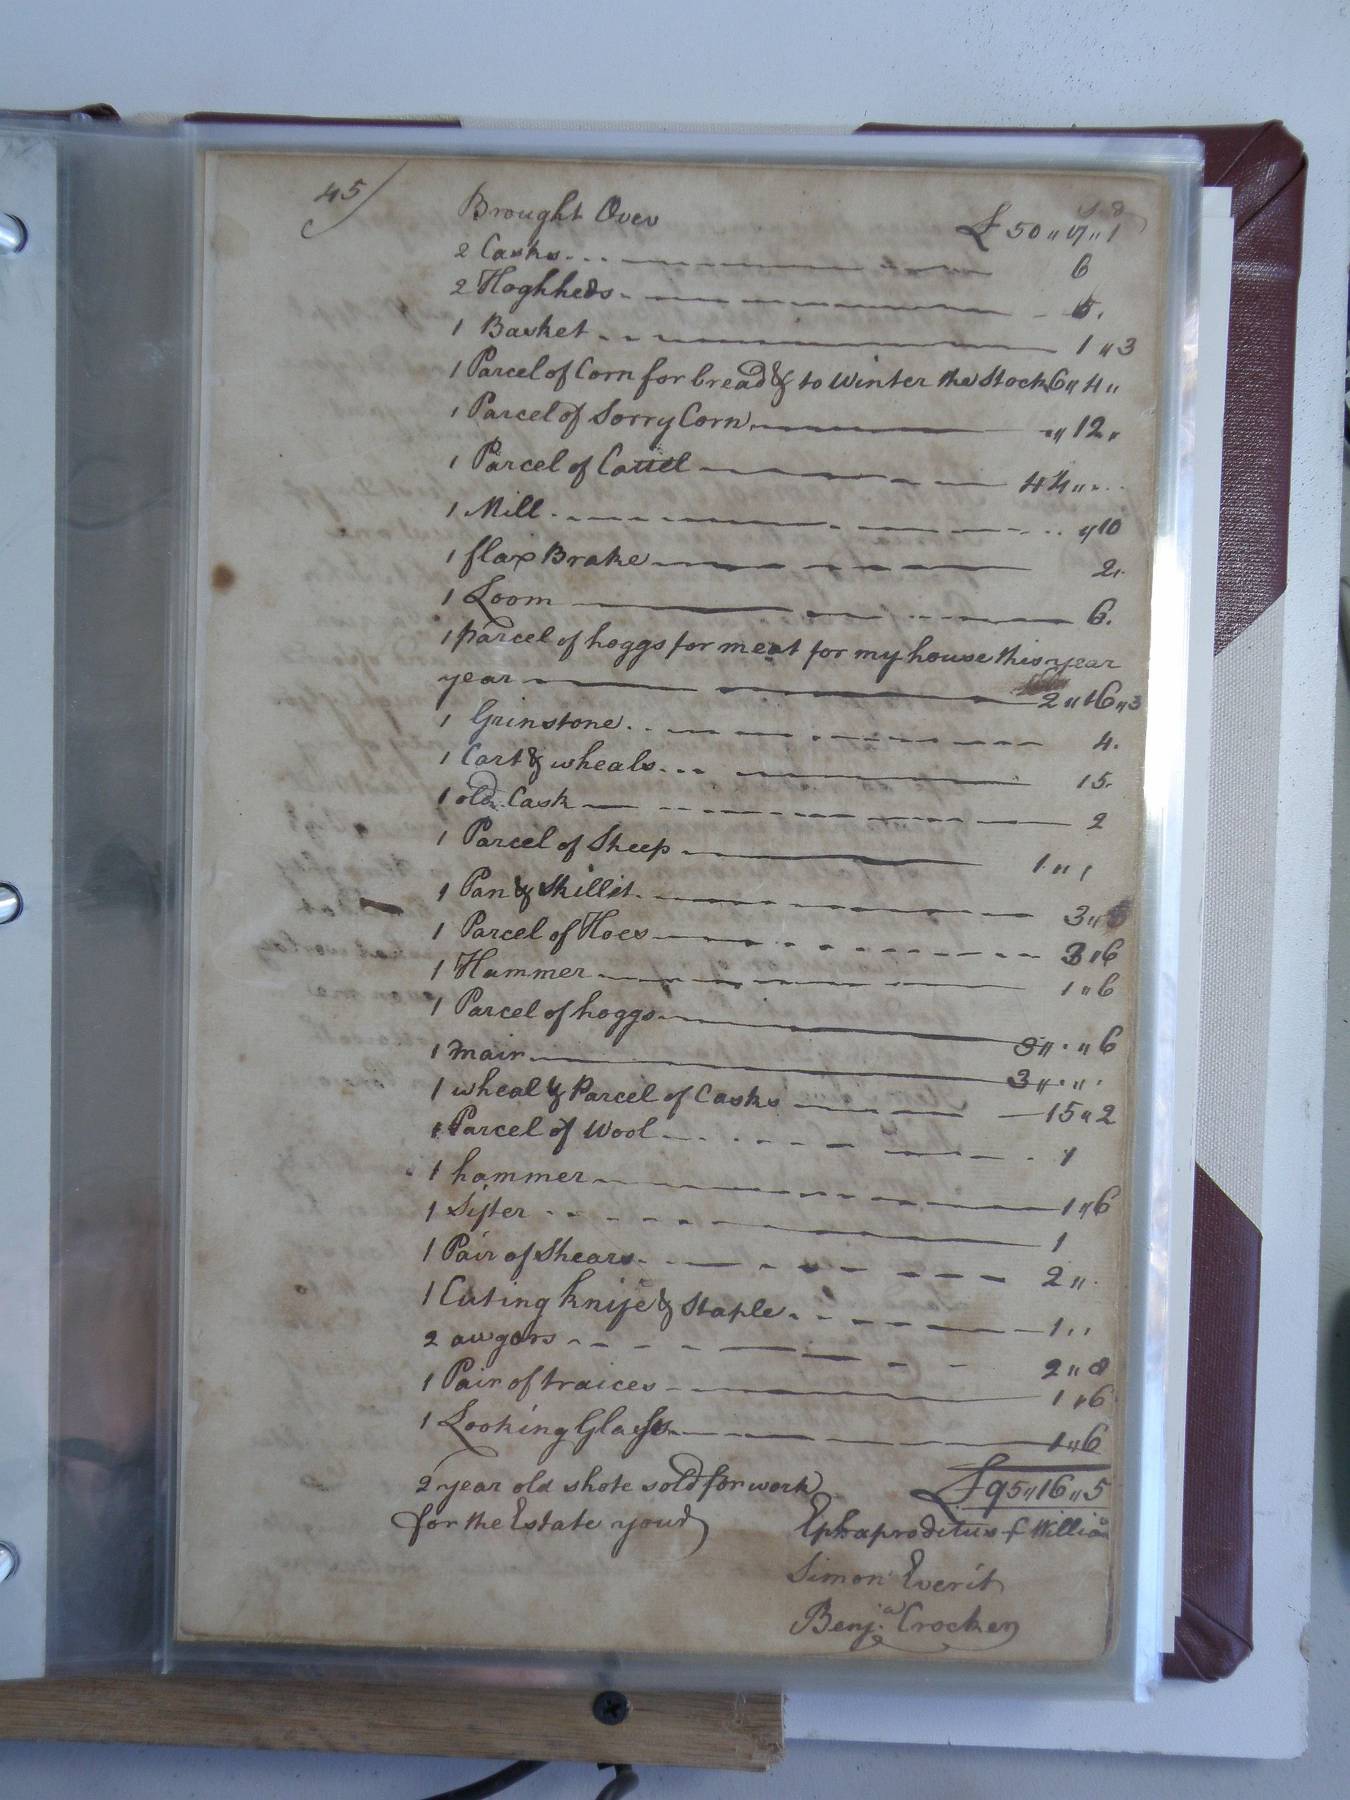 45
s d
Brought Over £ 50 " 17 " 1
2 Casks 6
2 Hoghheds 5.
1 Basket 1 " 3
1 Parcel of Corn for bread & to Winter the Stock 6 " 4 "
1 Parcel of Sorry Corn " 12 "
1 Parcel of Cattel
1 Mill " 10
1 flax Brake 2.
1 Loom 6.
1 parcel of hoggs for meat for my house this year
year 2 " 16 " 3
1 Grinstone 4.
1 Cart & wheals 15.
1 old Cask 2
1 Parcel of Sheep 1 " " 1
1 Pan & Skillit 3 "
1 Parcel of Hoes 3 " 6
1 Hammer 1 " 6
1 Parcel of hoggs 3 " . " 6
1 mair 3 " . " .
1 wheal & Parcel of Casks 15 " 2
1 Parcel of Wool 1
1 hammer 1 " 6
1 Sifter 1
1 Pair of Shears 2 " .
1 Cuting knife & Staple 1 " .
2 awgars 2 " 8
1 Pair of traices 1 " 6
1 Looking Glass 1 " 6
£ 95 " 16 " 5
2 year old shote sold for work
for the Estate your
Ephaproditus
Simon Everit
Benj.a Crocker